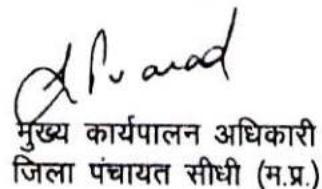 मुख्य कार्यपालन अधिकारी
जिला पंचायत सीधी (म.प्र.)